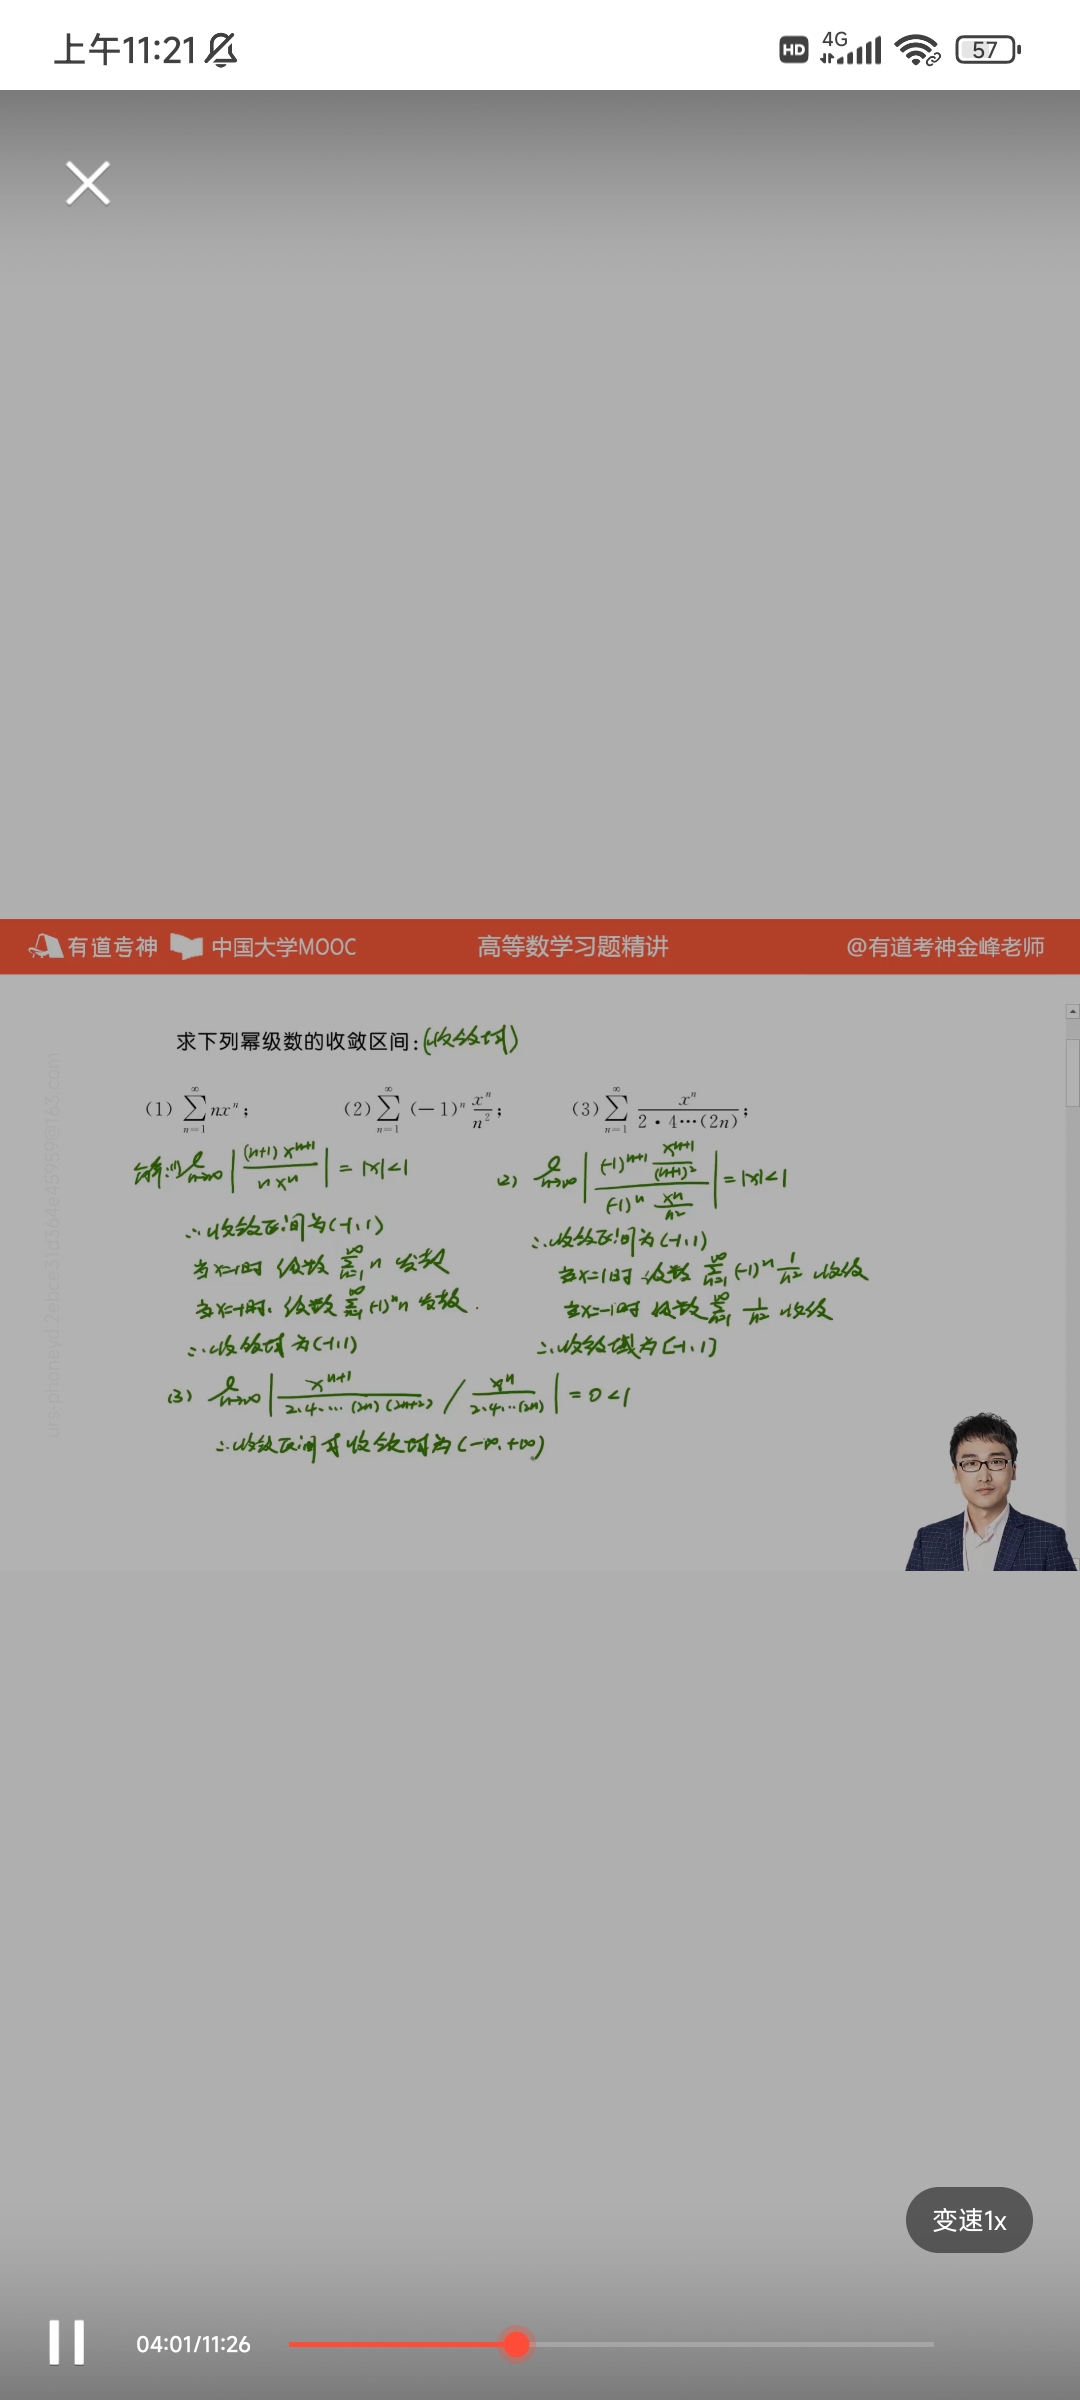 上午11:21 HD 4G 57
有道考神 中国大学MOOC 高等数学习题精讲 @有道考神金峰老师
求下列幂级数的收敛区间:(收敛域)
(1) ∑_{n=1}^{∞} nxⁿ; (2) ∑_{n=1}^{∞} (-1)ⁿ xⁿ/n²; (3) ∑_{n=1}^{∞} xⁿ/(2·4⋯(2n));
解:(1) lim_{n→∞} |(n+1)xⁿ⁺¹/(nxⁿ)| = |x|<1
∴收敛区间为(-1,1)
当x=1时 级数 ∑_{n=1}^{∞} n 发散
当x=-1时, 级数 ∑_{n=1}^{∞} (-1)ⁿn 发散.
∴收敛域为(-1,1)
(2) lim_{n→∞} |(-1)ⁿ⁺¹ xⁿ⁺¹/(n+1)² / ((-1)ⁿ xⁿ/n²)| = |x|<1
∴收敛区间为(-1,1)
当x=1时 级数 ∑_{n=1}^{∞} (-1)ⁿ 1/n² 收敛
当x=-1时 级数 ∑_{n=1}^{∞} 1/n² 收敛
∴收敛域为[-1,1]
(3) lim_{n→∞} |xⁿ⁺¹/(2·4⋯(2n)(2n+2)) / xⁿ/(2·4⋯(2n))| = 0<1
∴收敛区间于收敛域为(-∞,+∞)
变速1x
04:01/11:26